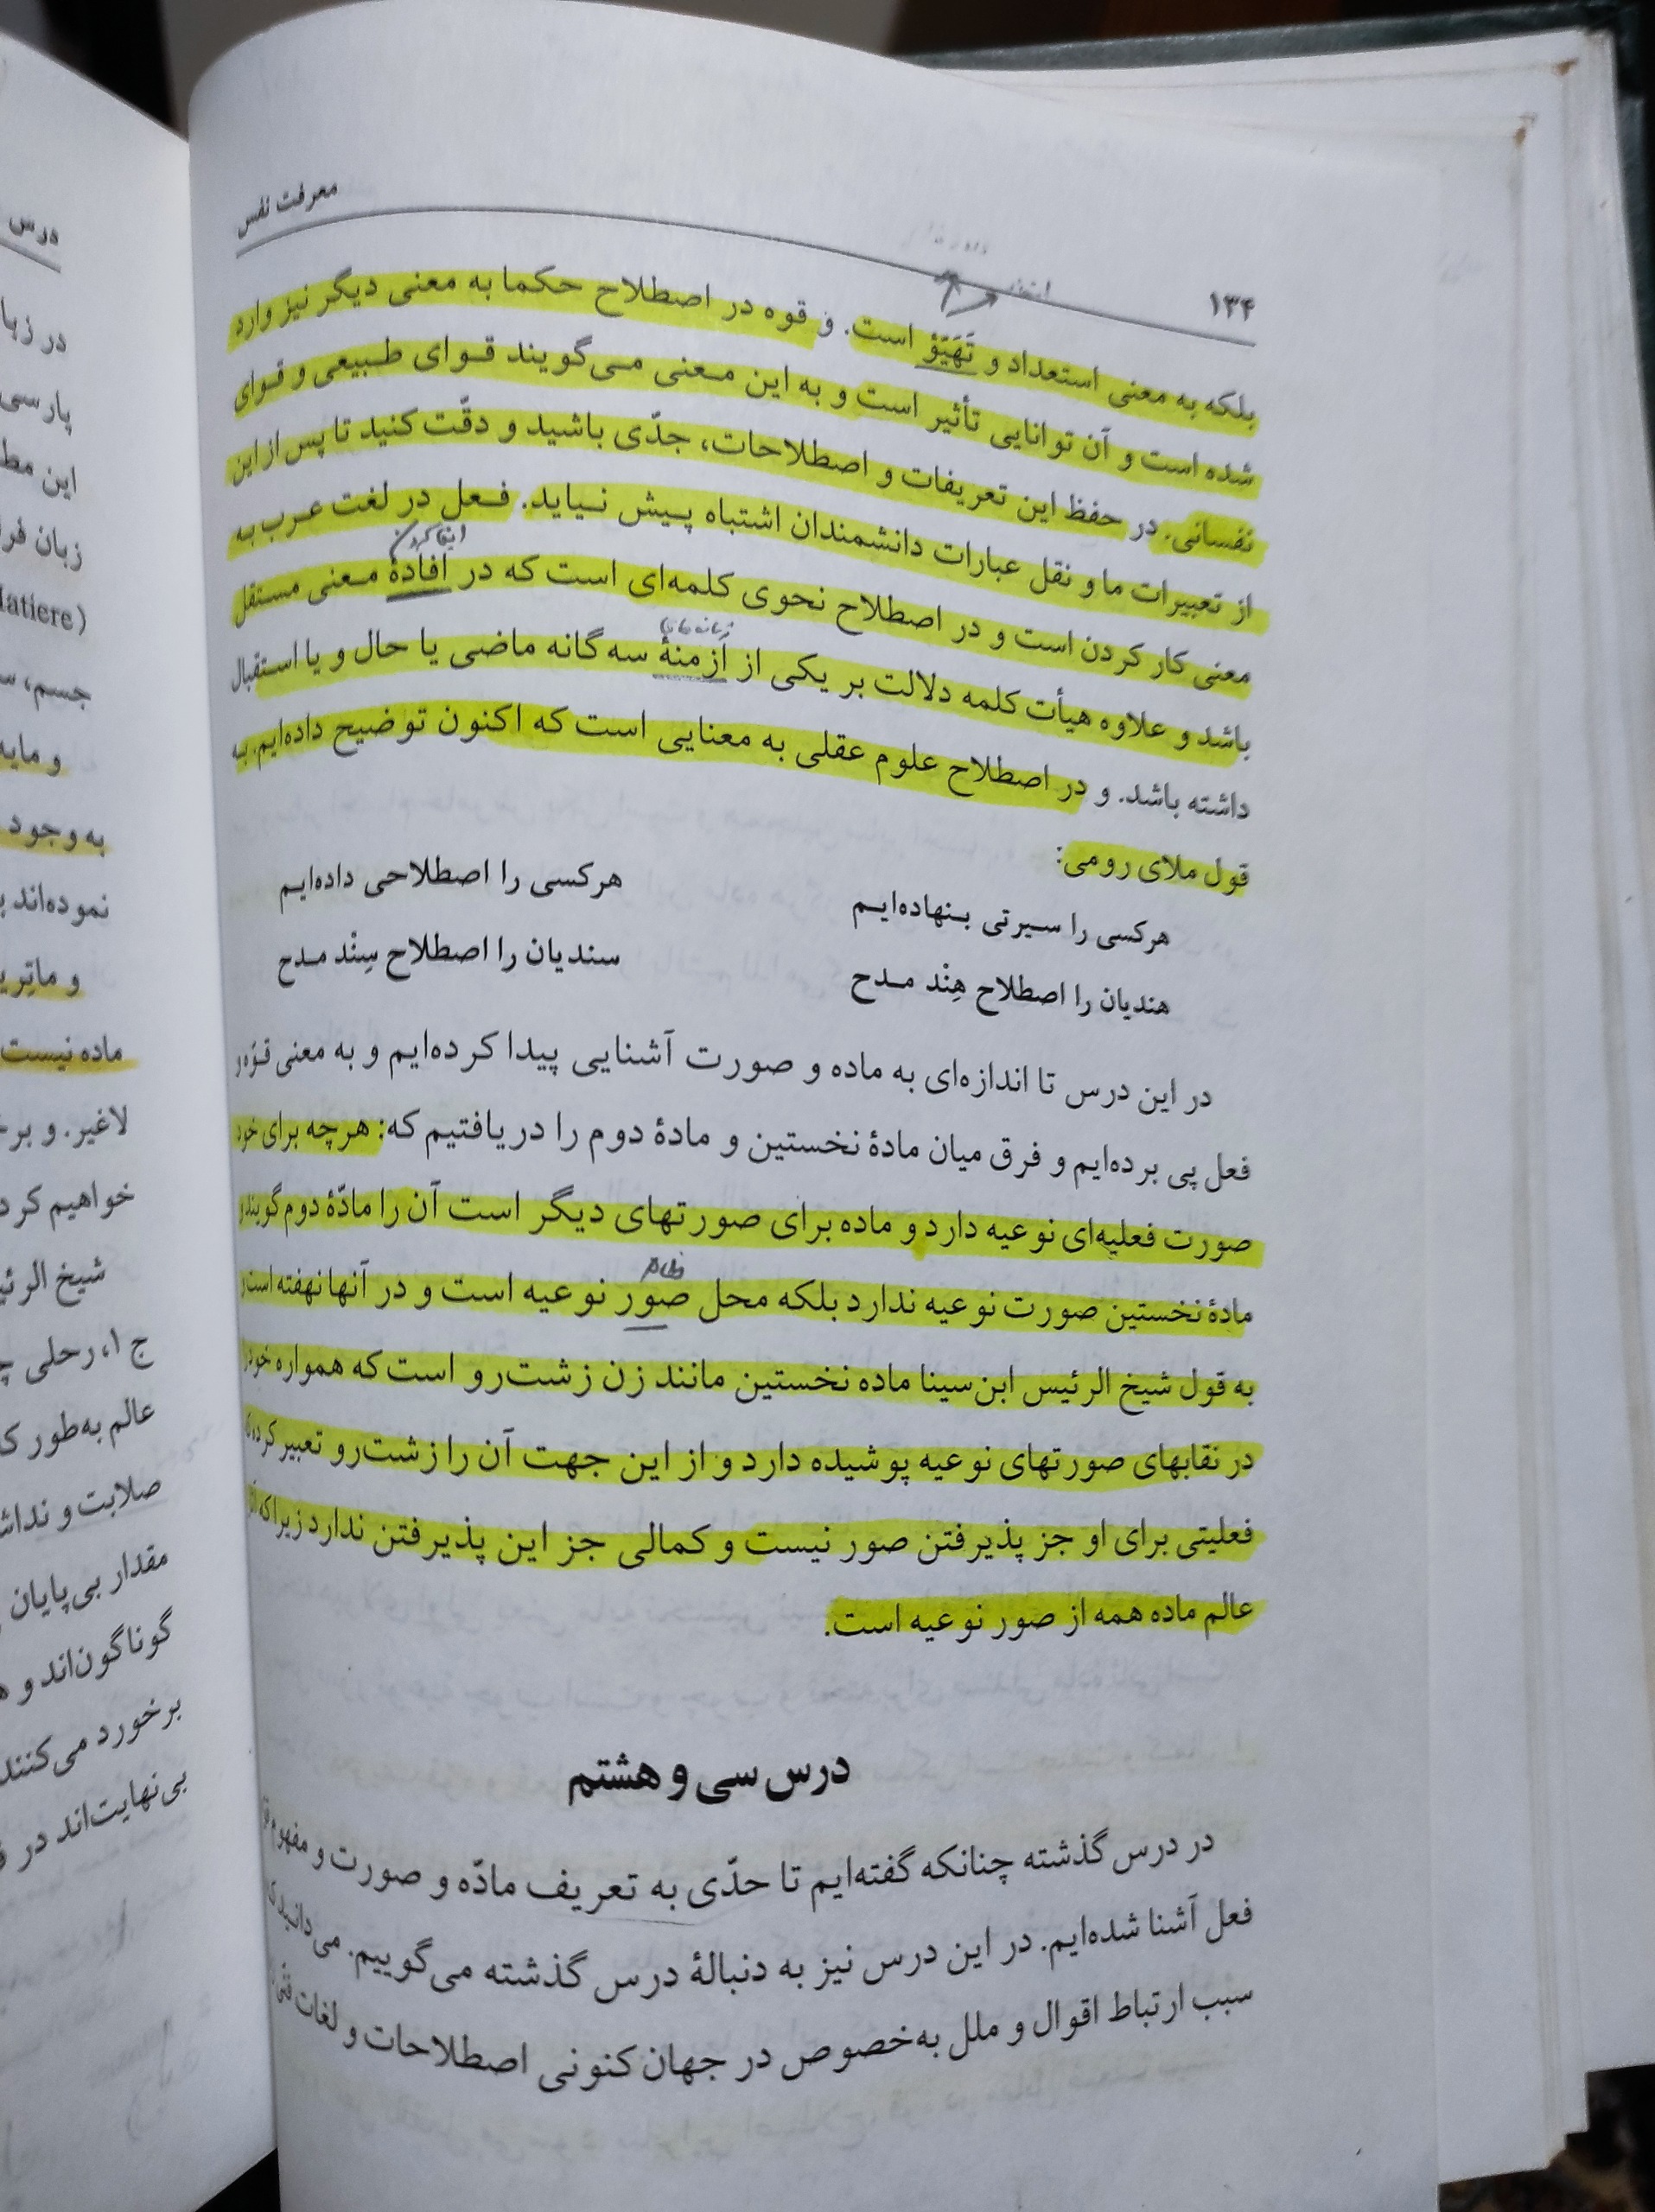 معرفت نفس
۱۳۴
بلکه به معنی استعداد و تَهَیّؤ است. و قوه در اصطلاح حکما به معنی دیگر نیز وارد
شده است و آن توانایی تأثیر است و به این معنی می‌گویند قوای طبیعی و قوای
نفسانی. در حفظ این تعریفات و اصطلاحات، جدّی باشید و دقّت کنید تا پس از این
از تعبیرات ما و نقل عبارات دانشمندان اشتباه پیش نیاید. فعل در لغت عرب به
معنی کار کردن است و در اصطلاح نحوی کلمه‌ای است که در افادهٔ معنی مستقل
باشد و علاوه هیأت کلمه دلالت بر یکی از اَزمنهٔ سه گانه ماضی یا حال و یا استقبال
داشته باشد. و در اصطلاح علوم عقلی به معنایی است که اکنون توضیح داده‌ایم. به
قول ملای رومی:
هرکسی را سیرتی بنهاده‌ایم هرکسی را اصطلاحی داده‌ایم
هندیان را اصطلاح هِنْد مدح سندیان را اصطلاح سِنْد مدح
در این درس تا اندازه‌ای به ماده و صورت آشنایی پیدا کرده‌ایم و به معنی قوّه و
فعل پی برده‌ایم و فرق میان مادهٔ نخستین و مادهٔ دوم را دریافتیم که: هرچه برای خود
صورت فعلیه‌ای نوعیه دارد و ماده برای صورتهای دیگر است آن را مادّهٔ دوم گویند و
مادهٔ نخستین صورت نوعیه ندارد بلکه محل صور نوعیه است و در آنها نهفته است و
به قول شیخ الرئیس ابن‌سینا ماده نخستین مانند زن زشت‌رو است که همواره خود را
در نقابهای صورتهای نوعیه پوشیده دارد و از این جهت آن را زشت‌رو تعبیر کرده که
فعلیتی برای او جز پذیرفتن صور نیست و کمالی جز این پذیرفتن ندارد زیرا که
عالم ماده همه از صور نوعیه است.
درس سی و هشتم
در درس گذشته چنانکه گفته‌ایم تا حدّی به تعریف مادّه و صورت و مفهوم
فعل آشنا شده‌ایم. در این درس نیز به دنبالهٔ درس گذشته می‌گوییم. می‌دانید که
سبب ارتباط اقوال و ملل به‌خصوص در جهان کنونی اصطلاحات و لغات فنّی
درس
در زبا
پارسی
این مط
زبان فر
latiere)
جسم، س
و مایه
به وجود
نموده‌اند
و ماتِری
ماده نیست
لاغیر. و بر
خواهیم کرد
شیخ الرئی
ج ۱، رحلی چ
عالم به‌طور ک
صلابت و نداش
مقدار بی‌پایان
گوناگون‌اند و ه
برخورد می‌کنند
بی‌نهایت‌اند در